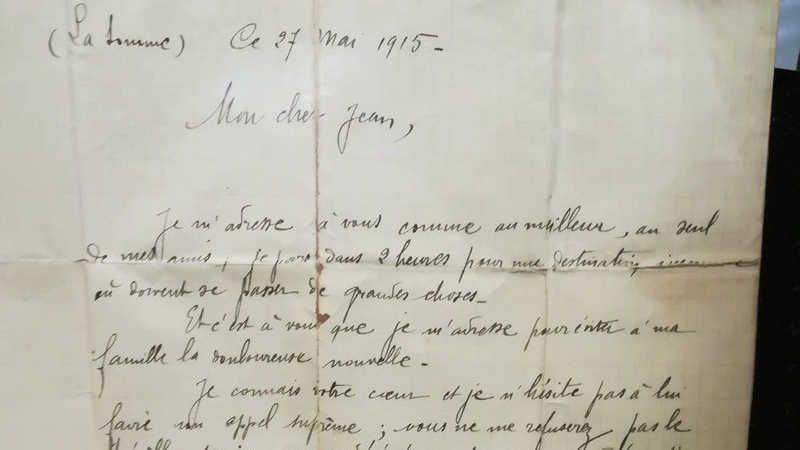 (La Somme) Ce 27 Mai 1915-
Mon cher Jean,
Je m'adresse à vous comme au meilleur, au seul
de mes amis, je pars dans 2 heures pour une destination
où doivent se passer de grandes choses-
Et c'est à vous que je m'adresse pour éviter à ma
famille la douloureuse nouvelle-
Je connais votre cœur et je n'hésite pas à lui
faire un appel suprême; vous ne me refuserez pas le